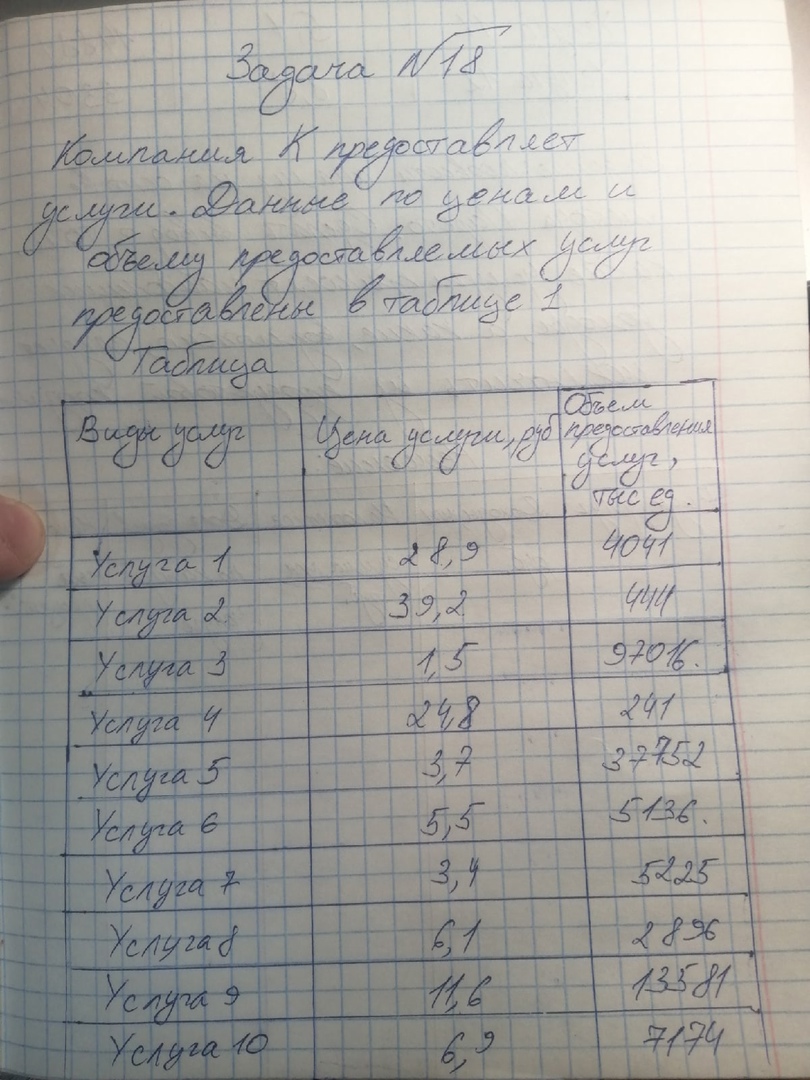 Задача №18
Компания К предоставляет
услуги. Данные по ценам и
объему предоставляемых услуг
предоставлены в таблице 1
Таблица
Виды услуг Цена услуги, руб Объем предоставления услуг, тыс ед.
Услуга 1 28,9 4041
Услуга 2 39,2 444
Услуга 3 1,5 97016.
Услуга 4 24,8 241
Услуга 5 3,7 37752
Услуга 6 5,5 5136.
Услуга 7 3,4 5225
Услуга 8 6,1 2896
Услуга 9 11,6 13581
Услуга 10 6,9 7174